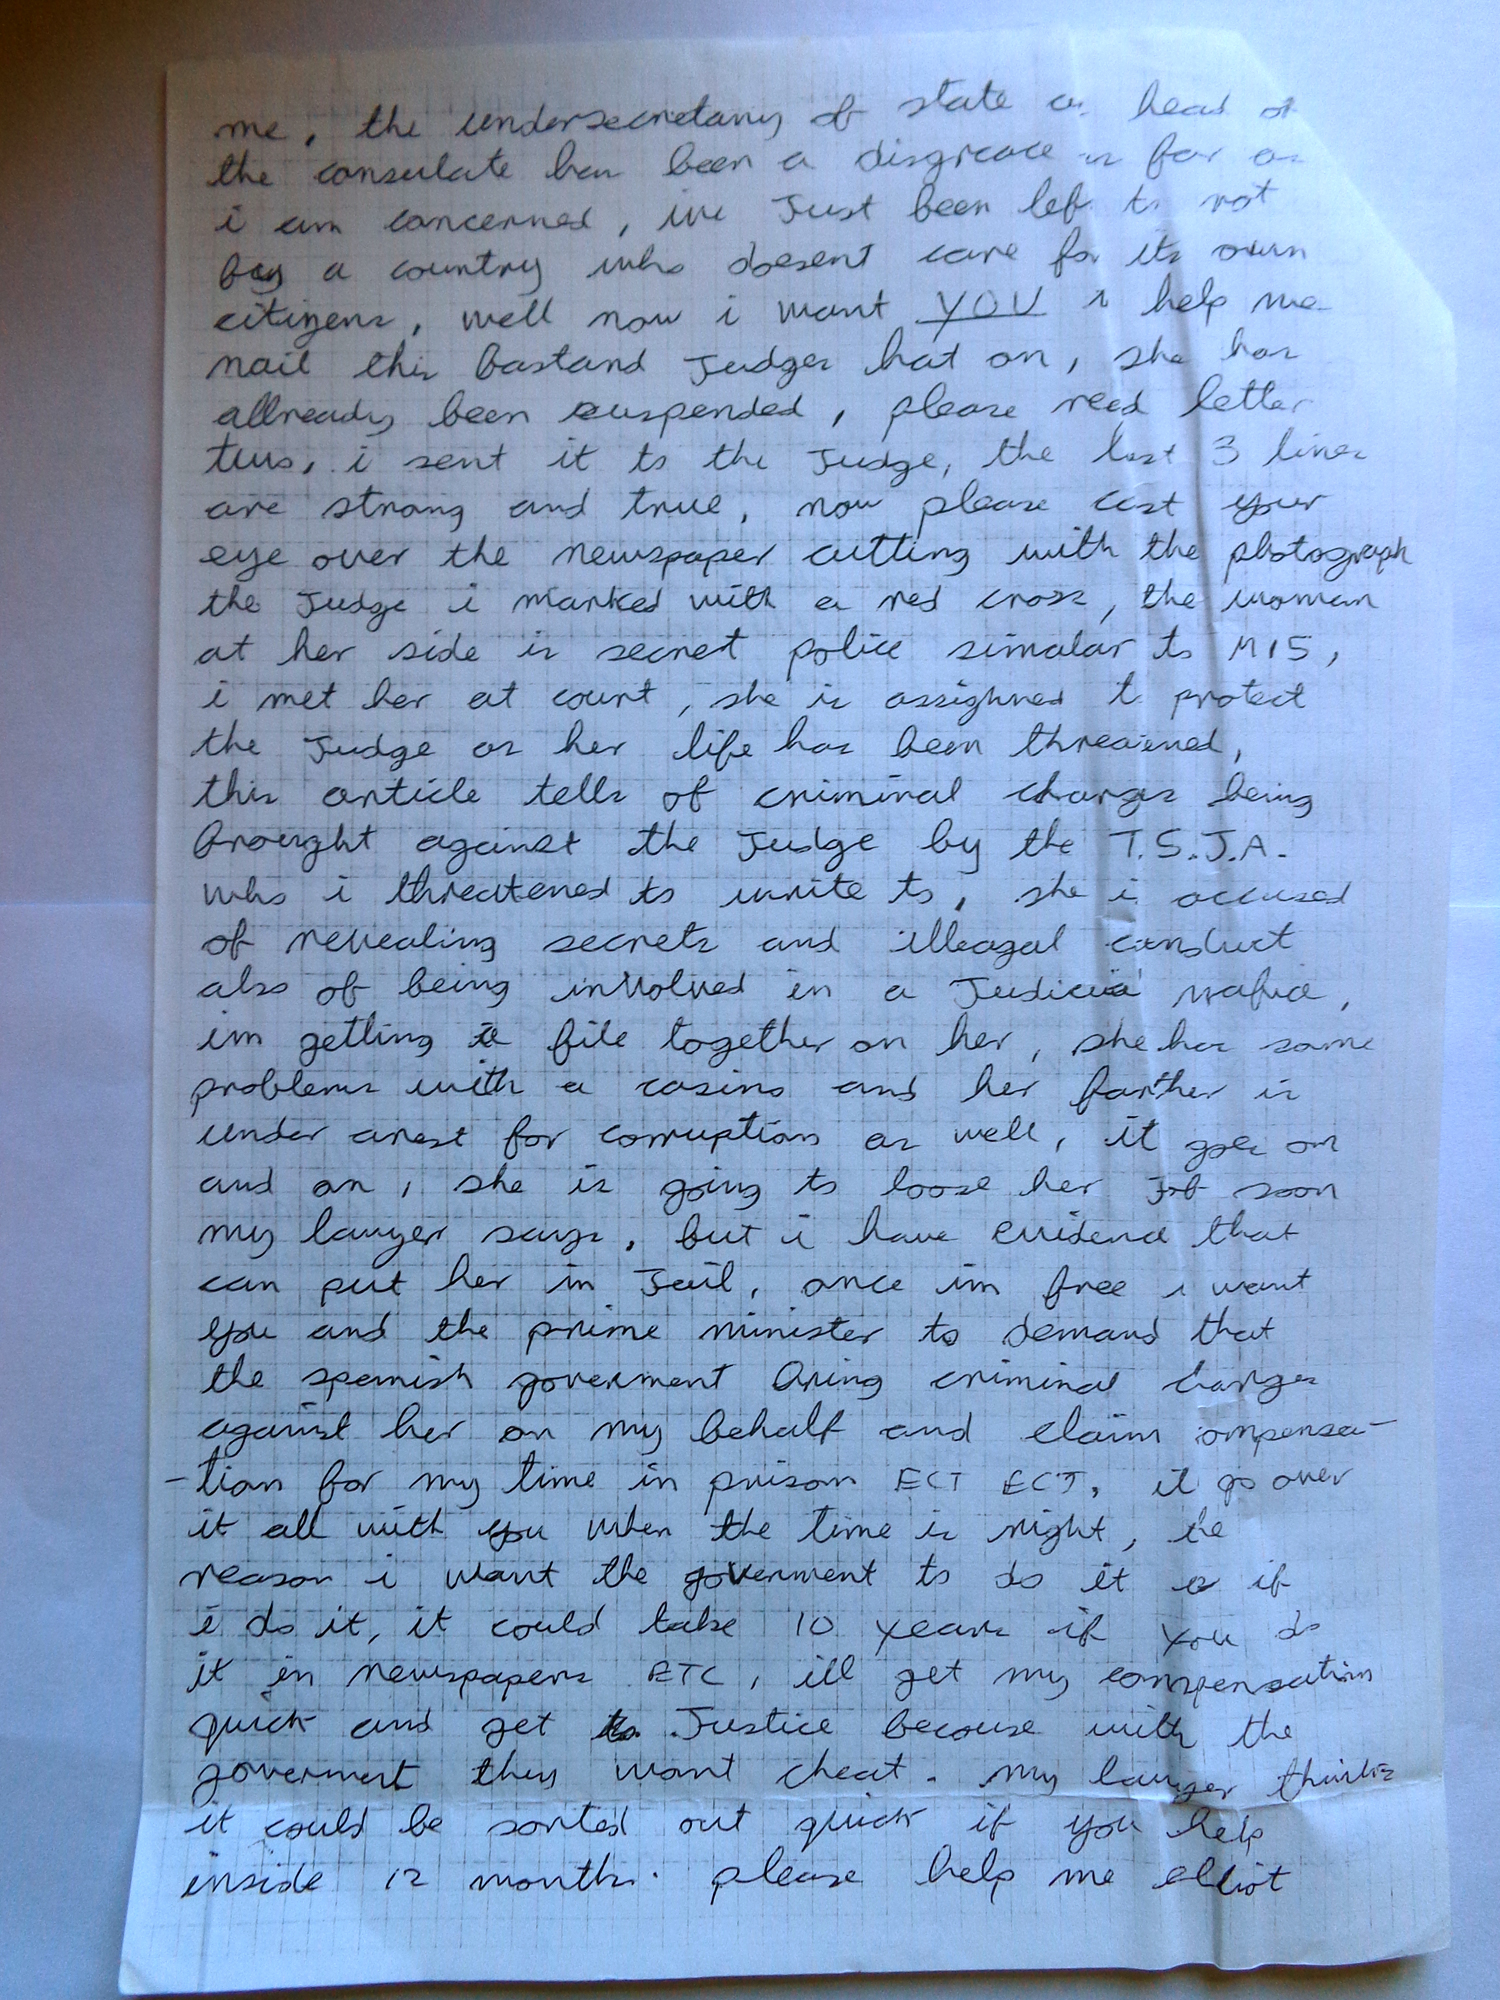 me, the undersecretary of state as head of
the consulate has been a disgrace as far as
i am concerned, ive Just been left to rot
by a country who doesent care for its own
citizens, well now i want YOU to help me
nail this bastard Judges hat on, she has
allready been suspended, please read letter
two, i sent it to the Judge, the last 3 lines
are strong and true, now please cast your
eye over the newspaper cutting with the photograph
the Judge i marked with a red cross, the woman
at her side is secret police simalar to MI5,
i met her at court, she is assighned to protect
the Judge as her life has been threatened,
this article tells of criminal charges being
brought against the Judge by the T.S.J.A.
who i threatened to write to, she is accused
of revealing secrets and illeagal conduct
also of being involved in a Judicial mafia,
im getting a file together on her, she has some
problems with a casino and her farther is
under arest for corruption as well, it goes on
and on, she is going to loose her Job soon
my lawyer says, but i have evidence that
can put her in Jail, once im free i want
you and the prime minister to demand that
the spanish goverment bring criminal charges
against her on my behalf and claim compensa-
-tion for my time in prison ECT ECT, il go over
it all with you when the time is right, the
reason i want the goverment to do it is if
i do it, it could take 10 years if you do
it in newspapers ETC, ill get my compensation
quick and get Justice because with the
goverment they wont cheat. my lawyer thinks
it could be sorted out quick if you help
inside 12 months. please help me elliot